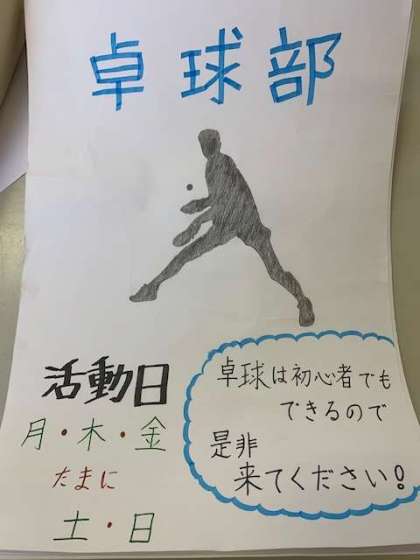 卓球部
活動日
月・木・金
たまに
土・日
卓球は初心者でも
できるので
是非
来てください!